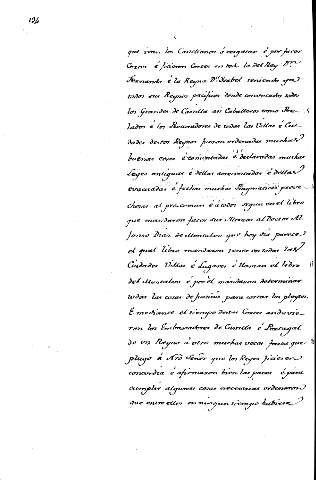 194
que vino. los Castellanos é vezinos é por facer
Cortes é ficieron Cortes en Toledo del Rey Dn.
Fernando é la Reyna Da. Isabel teniendo que
todos sus Reynos pacificos donde convocados todos
los Grandes de Castilla asi Caballeros como Per-
lados é los Procuradores de todas las Villas é Ciu-
dades destos Reynos fueron ordenadas muchas
buenas cosas é concertadas é declaradas muchas
Leyes antiguas é dellas acrecentadas é dellas
evacuadas é fechas muchas Pragmaticas prove-
chosas al procomun é á todos segun en el libro
que mandaron facer sus Altezas al Doctor Al-
fonso Diaz de Montalvo que hoy dia parece,
el qual libro mandaron tener en todas las
Ciudades Villas é Lugares é llaman el libro
del Montalvo é por él mandaron determinar
todas las cosas de justicia para cortar los pleytos.
E mediante el tiempo destas Cortes anduvie-
ron los Embaxadores de Castilla é Portugal
de un Reyno á otro muchas veces fasta que
plugo á Nro Señor que los Reyes ficieron
concordia é afirmaron bien las paces é para
cumplir algunas cosas necesarias ordenaron
que entre ellos en ningun tiempo hubiese